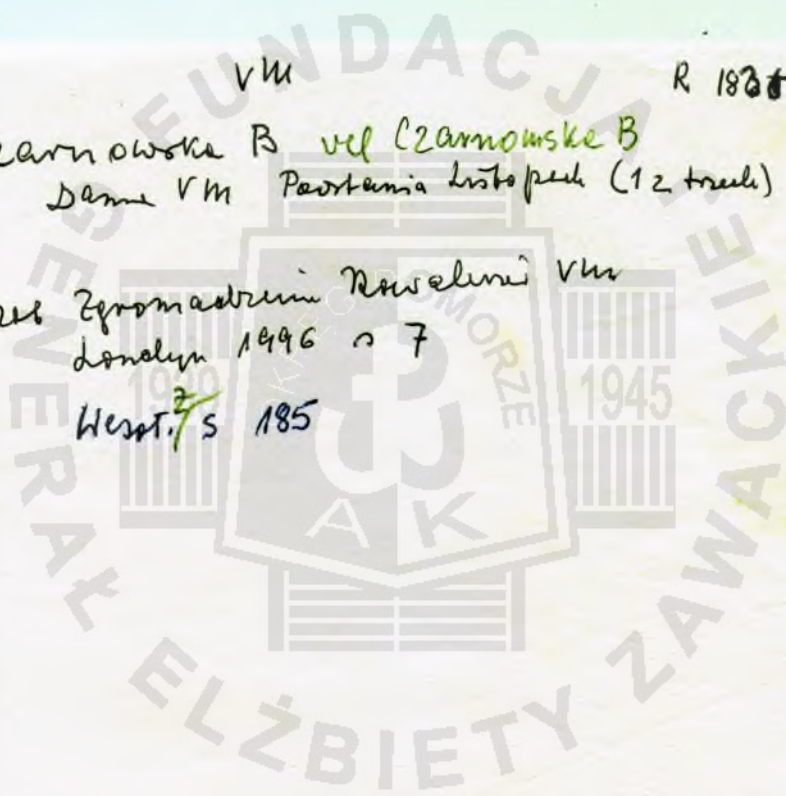 VM
R 1831
zarnowska B vel Czarnomska B
Dama VM Powstania Listopad (1 z trzech)
Zgromadzenie Kawalerów VM
Londyn 1996 s 7
Wesoł. z s 185
FUNDACJA
GENERAŁ ELŻBIETY ZAWACKIEJ
POMORZE
1939
1945
AK